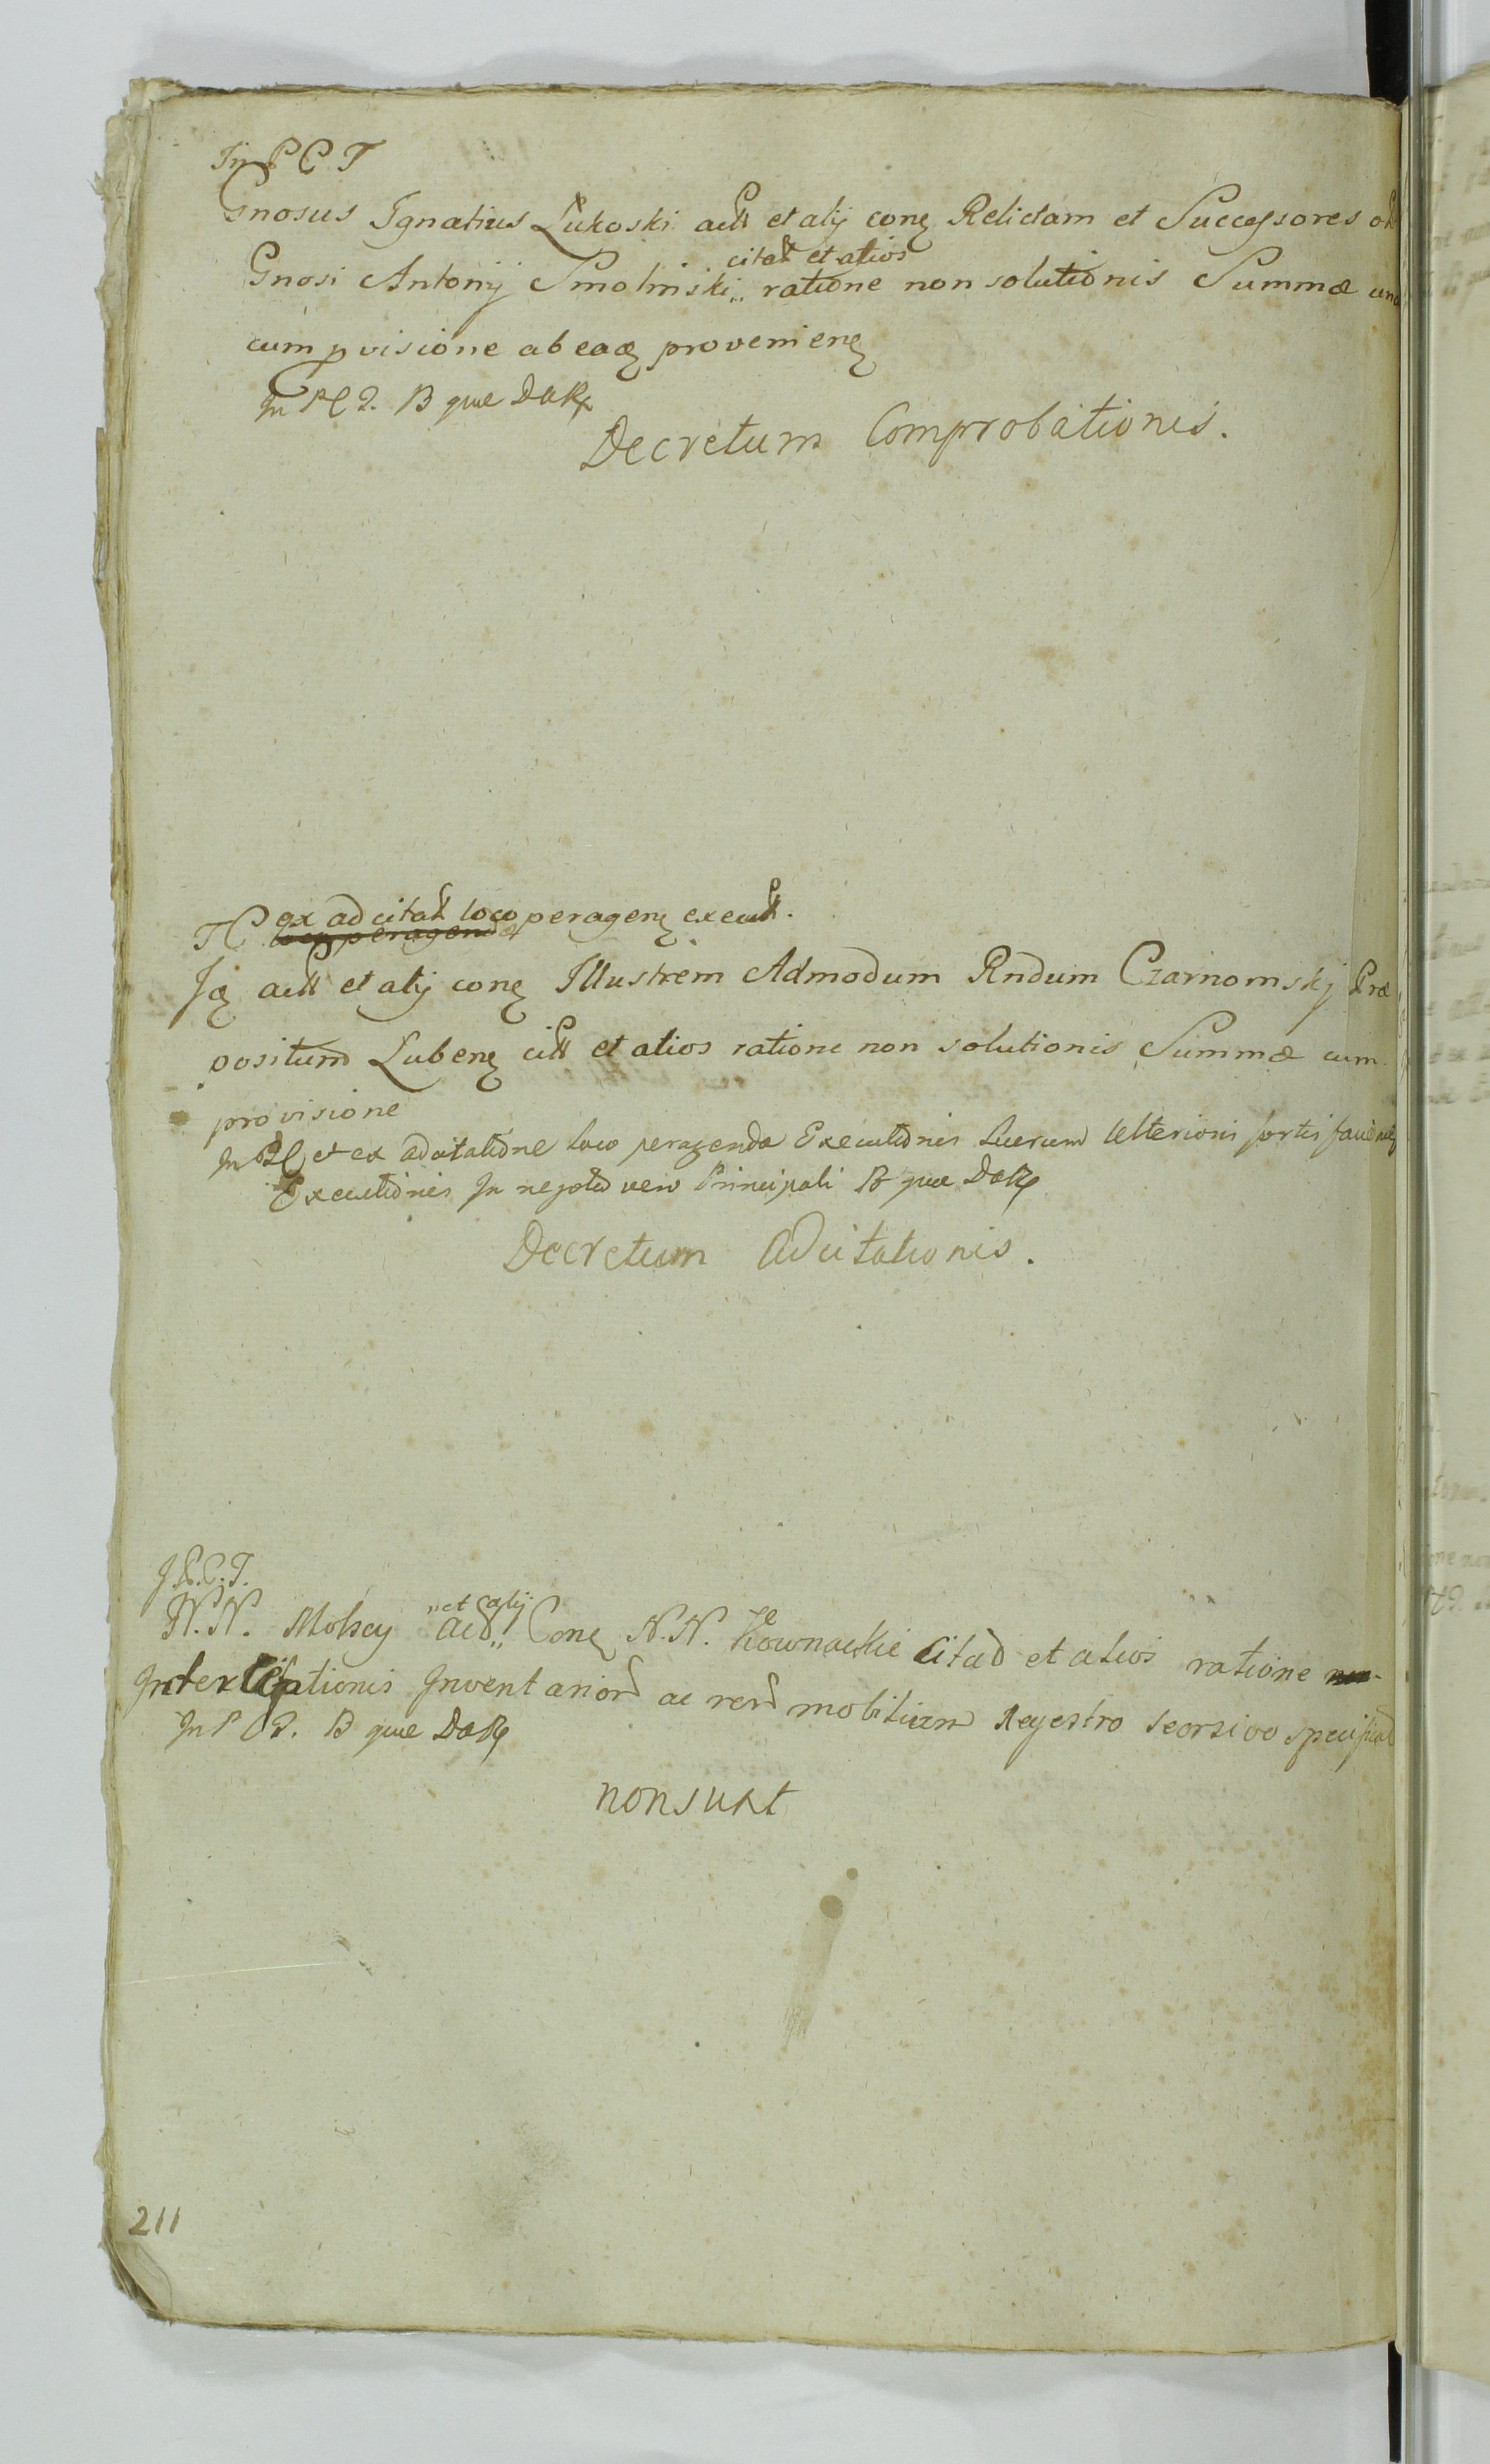 In P C T
Gnosus Ignatius Lukoski actt et alij cong Relictam et Successores
citat et alios
Gnosi Antonij Smolinski ratione non solutionis Summæ una
cum pvisione ab eaq provenieng
In P C T. B que DaR
Decretum Comprobationis.
ex adcitat loco perageng execut.
TC loco peragendæ
Iq actt et alij cong Illustrem Admodum Rndum Czarnomskj Præ
positum Lubeng citt et alios ratione non solutionis Summæ cum
provisione
In P C et ex adcitatione loco peragenda Executionis Lucrum Ulterioni sortis
Executionis In negotio vero Principali B que DaR
Decretum Adcitationis.
J.P.C.T.
et alij
N.N. Molscy act Cong N.N. Kownackie Citad et alios ratione
Interceptionis Inventarior ac rer mobilium Regestro seorsivo specificat
In P C T. B que DaR
non sunt
211